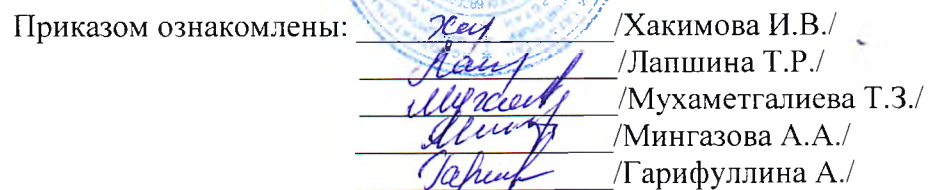 Приказом ознакомлены: /Хакимова И.В./
/Лапшина Т.Р./
/Мухаметгалиева Т.З./
/Мингазова А.А./
/Гарифуллина А./